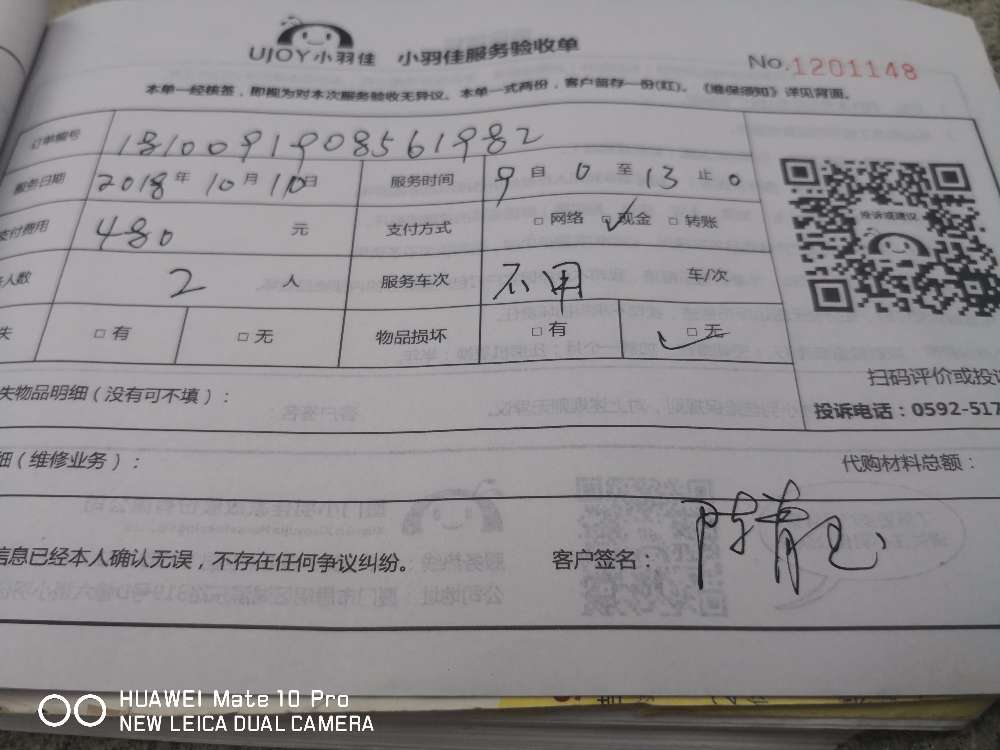 UJOY小羽佳 小羽佳服务验收单
No.1201148
本单一经核签，即视为对本次服务验收无异议。本单一式两份，客户留存一份(红)。《维保须知》详见背面。
订单编号 1810091908561982
服务日期 2018年10月10日 服务时间 9自0至13止0
支付费用 480元 支付方式 □网络 □现金 □转账
人数 2人 服务车次 不用 车/次
失 □有 □无 物品损坏 □有 □无
投诉或建议
扫码评价或投
失物品明细（没有可不填）：
投诉电话：0592-517
细（维修业务）： 代购材料总额：
信息已经本人确认无误，不存在任何争议纠纷。 客户签名：
HUAWEI Mate 10 Pro
NEW LEICA DUAL CAMERA